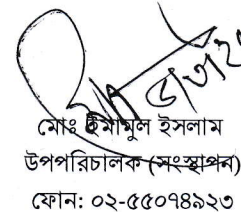 মোঃ ইমামুল ইসলাম
উপপরিচালক (সংস্থাপন)
ফোন: ০২-৫৫০৭৪৯২৩